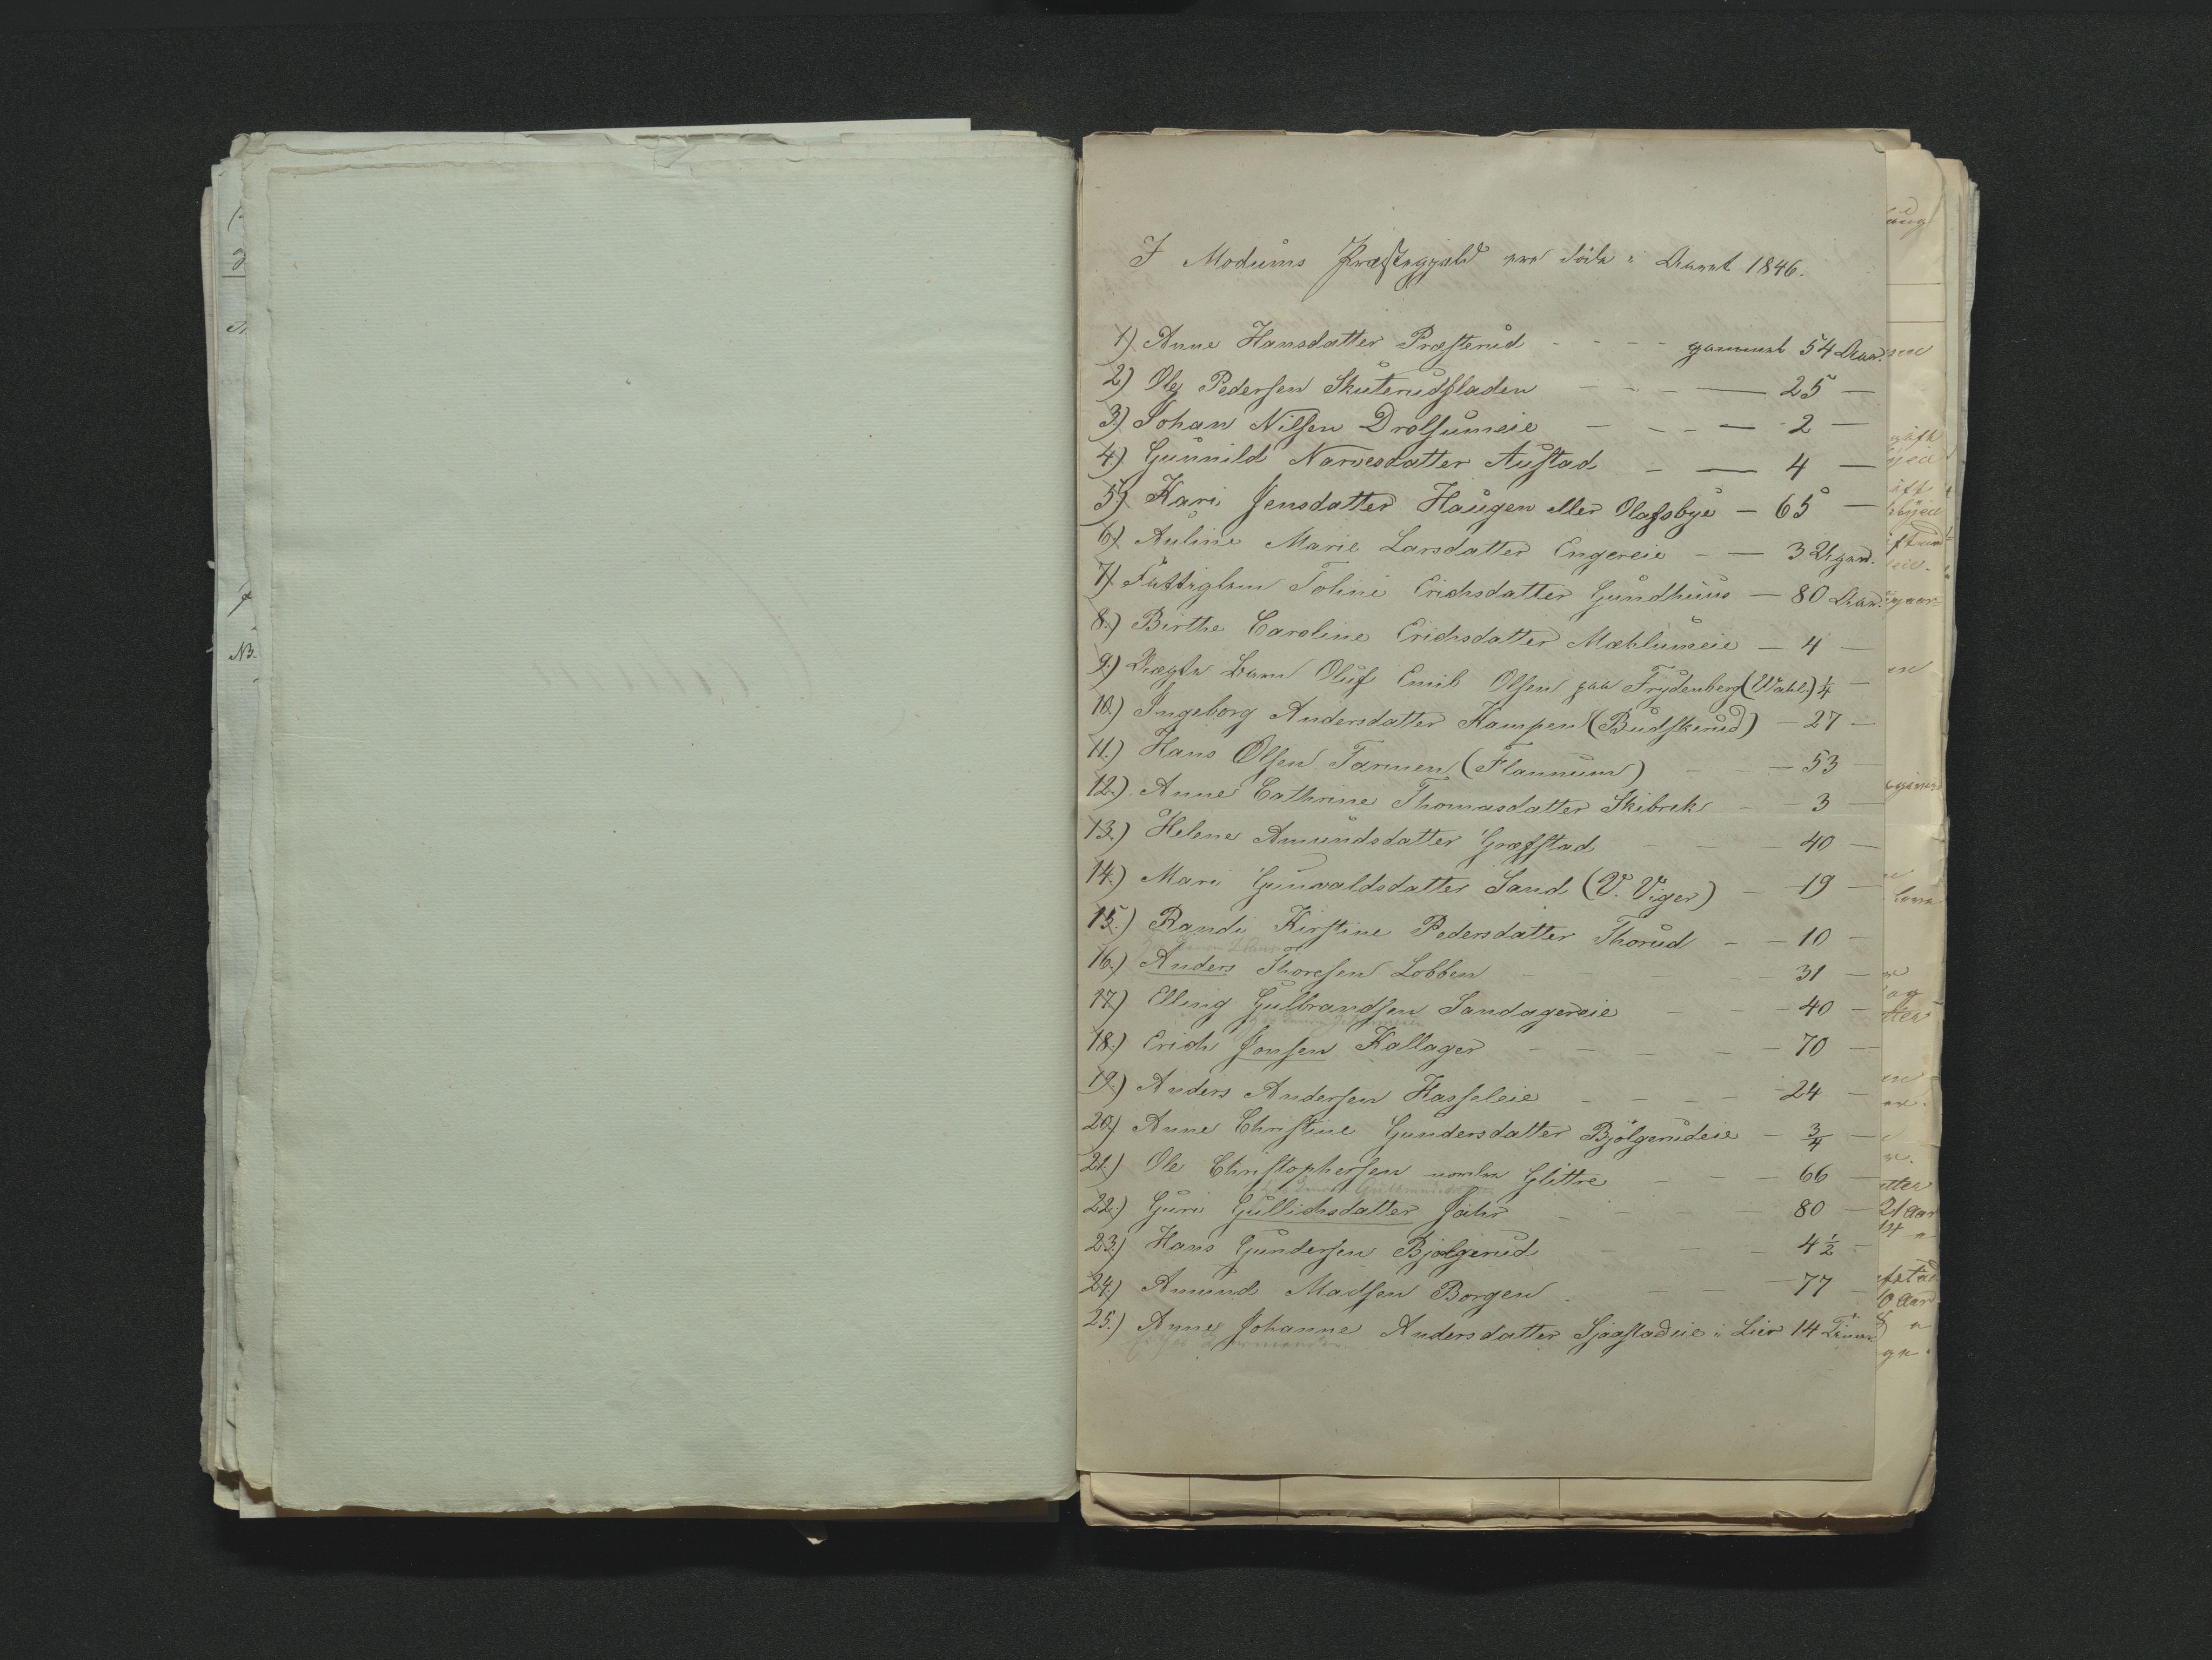 I Modums Præstegjæld ere døde i Aaret 1846.
1) Anne Hansdatter Præsterud - - - - gammel 54 Aar.
2) Ole Pedersen Skuterudfladen - - - — 25 —
3) Johan Nilsen Drolsumeie — - - — 2 —
4) Gunnild Narvesdatter Austad - — 4 —
5) Kari Jensdatter Haugen eller Olafsbye — 65 —
6) Auline Marie Larsdatter Engereie - — 3 Uger.
7) Fattiglem Toline Erichsdatter Gundhuus — 80 Aar.
8.) Birthe Caroline Erichsdatter Mæhlumeie — 4 —
9.) Uægte Barn Oluf Emil Olsen paa Frydenberg (Wahl) ¼ —
10.) Ingeborg Andersdatter Kampen (Budskerud) — 27 —
11.) Hans Olsen Tarmen (Flannum) - - — 53 —
12.) Anne Cathrine Thomasdatter Skibrek - - 3 —
13.) Helene Amundsdatter Græfstad - - 40 —
14.) Mari Gunvaldsdatter Sand (V. Viger) - 19 —
15.) Randi Kirstine Pedersdatter Thorud - - 10 —
16.) Anders Thoresen Lobben - - - 31 —
17) Elling Gulbrandsen Sandagereie - - - 40 —
18.) Erich Jonsen Kallager - - - - - 70 —
19.) Anders Andersen Hasseleie - - - - 24 —
20.) Anne Christine Gundersdatter Bjölgerudeie - ¾ —
21.) Ole Christophersen nordre Glittre - - - 66 —
22.) Guri Gullichsdatter Jahr - - - - 80 —
23.) Hans Gundersen Bjølgerud - - - 4½ -
24.) Amund Madsen Borgen - - - 77 -
25.) Anne Johanne Andersdatter Sjaastadeie i Lier 14 Timer
NB.
21 Aar
14 "